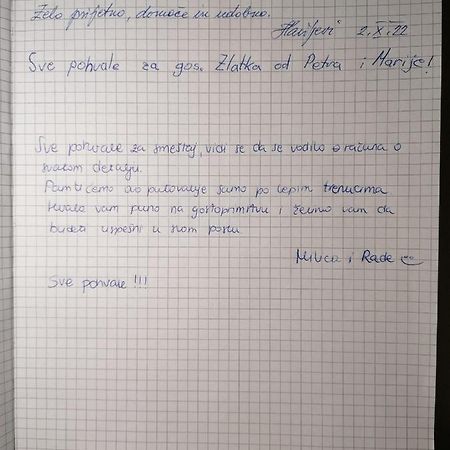 Zelo prijetno, domače in udobno.
2. X. 22
Sve pohvale za gos. Zlatka od Petra i Marije!
Sve pohvale za smeštaj, vidi se da se vodilo računa o
svakom detalju.
Pamtićemo ovo putovanje samo po lepim trenucima
Hvala vam puno na gostoprimstvu i želimo vam da
budete uspešni u svom poslu
Milica i Rade
Sve pohvale !!!